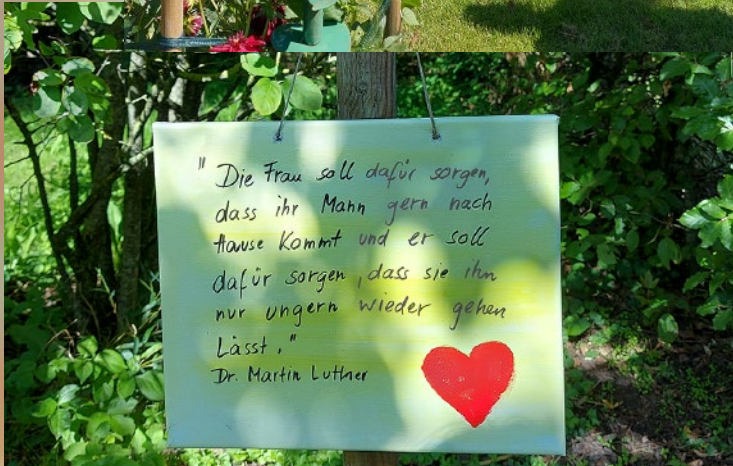 " Die Frau soll dafür sorgen,
dass ihr Mann gern nach
Hause kommt und er soll
dafür sorgen, dass sie ihn
nur ungern wieder gehen
Lässt."
Dr. Martin Luther